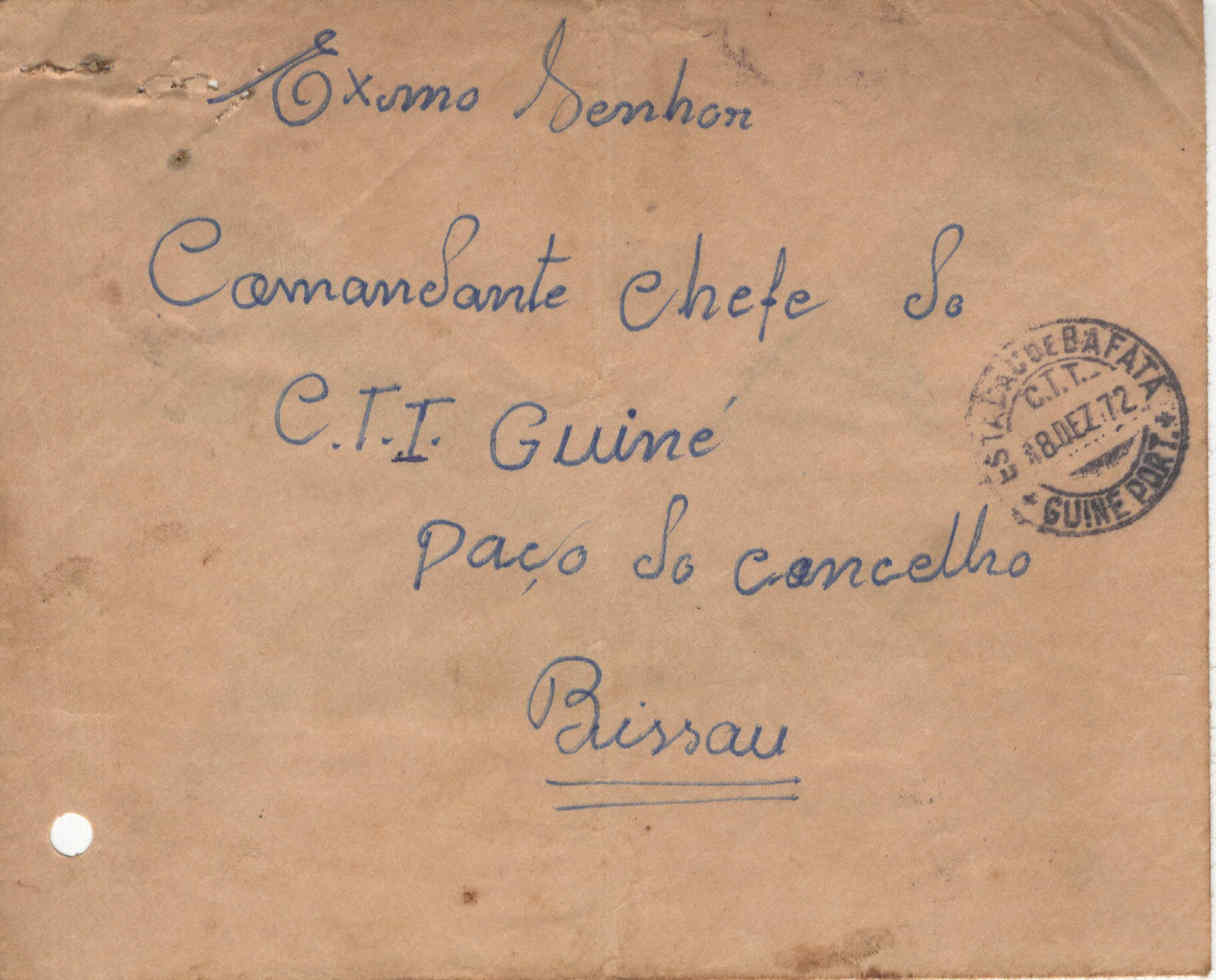 Exmo Senhor
Comandante chefe do
C.T.I. Guiné
paço do concelho
Bissau
ESTAÇÃO DE BAFATÁ
C.T.T.
18.DEZ.72
* GUINÉ PORT. *